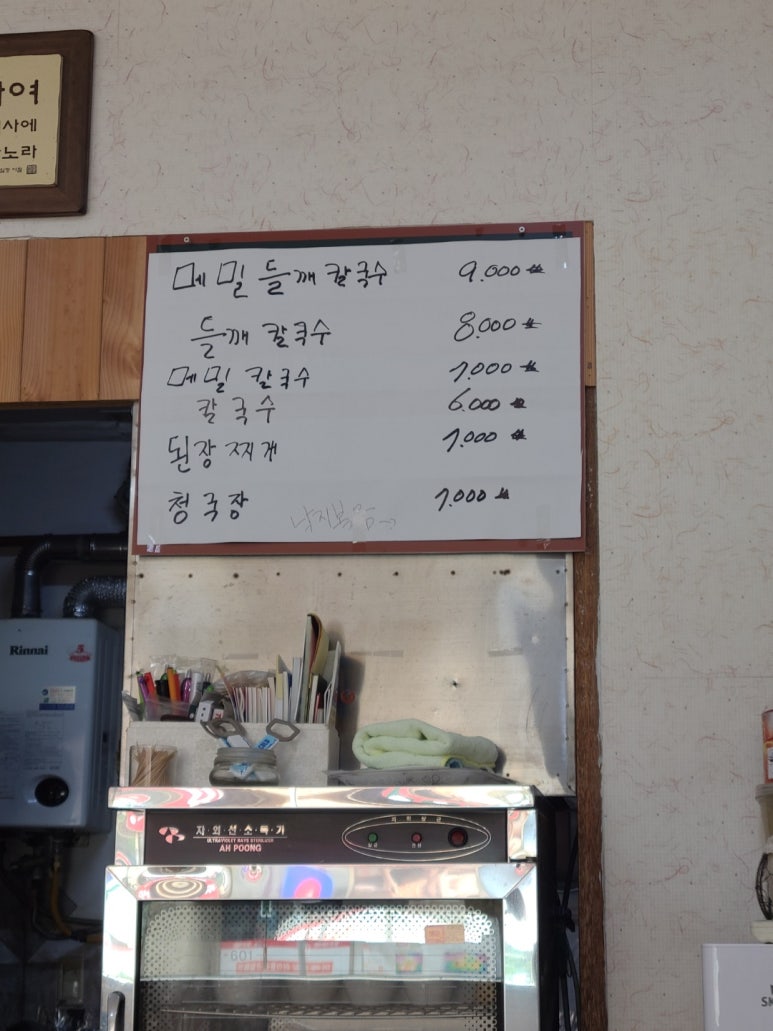 여
사에
노라
메밀들깨칼국수 9.000
들깨 칼국수 8.000
메밀 칼국수 7.000
칼국수 6.000
된장찌개 7.000
청국장 7.000
낙지볶음
Rinnai
자·외·선·소·독·기
ULTRAVIOLET RAYS STERILIZER
AH POONG
601
SK